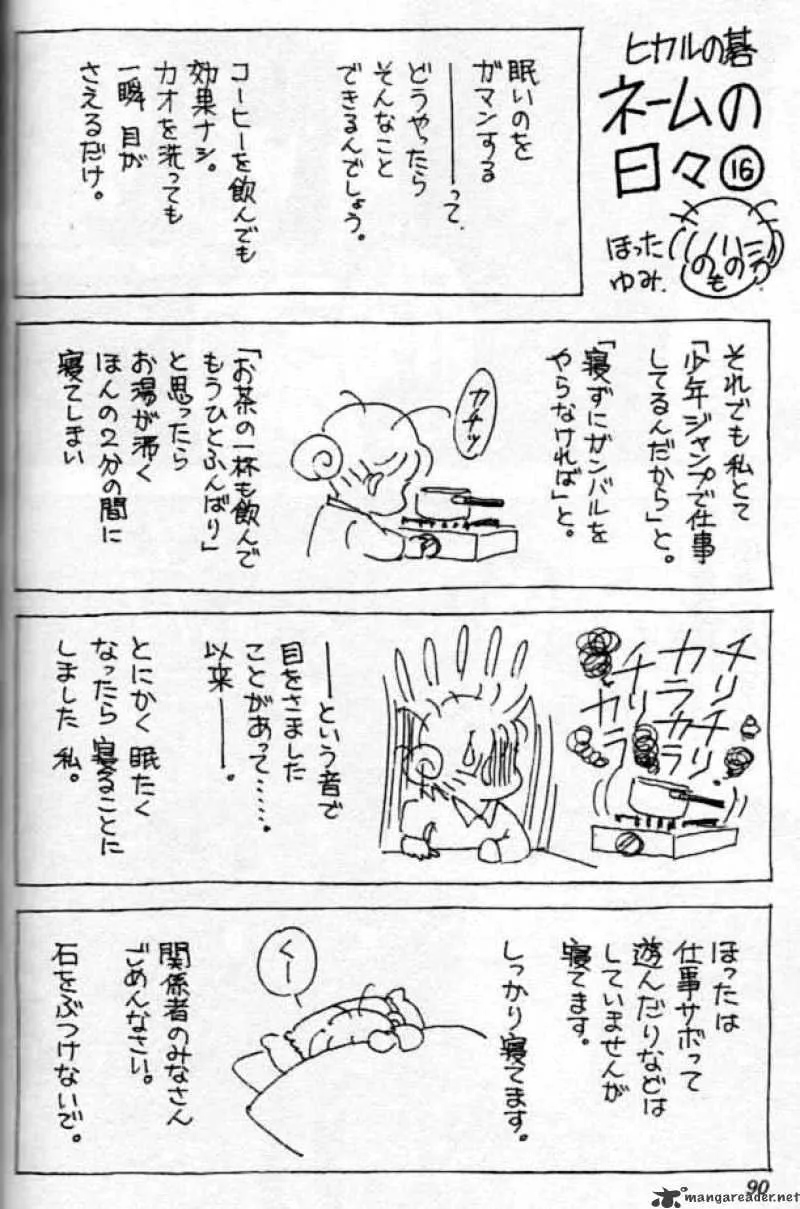 ヒカルの碁
ネームの
日々⑯
ほった
ゆみ
眠いのを
ガマンする
――って、
どうやったら
そんなこと
できるんでしょう。
コーヒーを飲んでも
効果ナシ。
カオを洗っても
一瞬 目が
さえるだけ。
それでも私とて
「少年ジャンプで仕事
してるんだから」と。
「寝ずにガンバルを
やらなければ」と。
カチッ
「お茶の一杯も飲んで
もうひとふんばり」
と思ったら
お湯が沸く
ほんの2分の間に
寝てしまい
チリチリ
カラカラ
チリ
カラ
――という音で
目をさました
ことがあって……。
以来――。
とにかく 眠たく
なったら 寝ることに
しました 私。
ほったは
仕事サボって
遊んだりなどは
していませんが
寝てます。
しっかり寝てます。
くー
関係者のみなさん
ごめんなさい。
石をぶつけないで。
90
mangareader.net